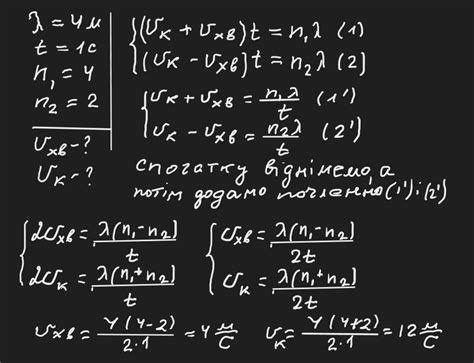 λ = 4м
t = 1с
n₁ = 4
n₂ = 2
υхв - ?
υк - ?
{(υк + υхв)t = n₁λ (1)
(υк - υхв)t = n₂λ (2)
{υк + υхв = n₁λ/t (1')
υк - υхв = n₂λ/t (2')
спочатку віднімемо, а
потім додамо почленно (1') і (2')
{2υхв = λ(n₁-n₂)/t
2υк = λ(n₁+n₂)/t
{υхв = λ(n₁-n₂)/2t
υк = λ(n₁+n₂)/2t
υхв = 4(4-2)/2·1 = 4 м/с υк = 4(4+2)/2·1 = 12 м/с